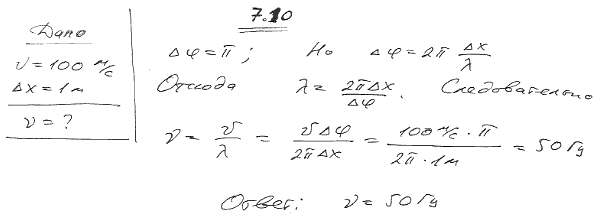 7.10
Дано
υ = 100 м/с
Δx = 1 м
ν = ?
Δφ = π ; Но Δφ = 2π Δx/λ
Отсюда λ = 2πΔx/Δφ. Следовательно
ν = υ/λ = υΔφ/2πΔx = 100 м/с · π/2π · 1 м = 50 Гц
Ответ: ν = 50 Гц